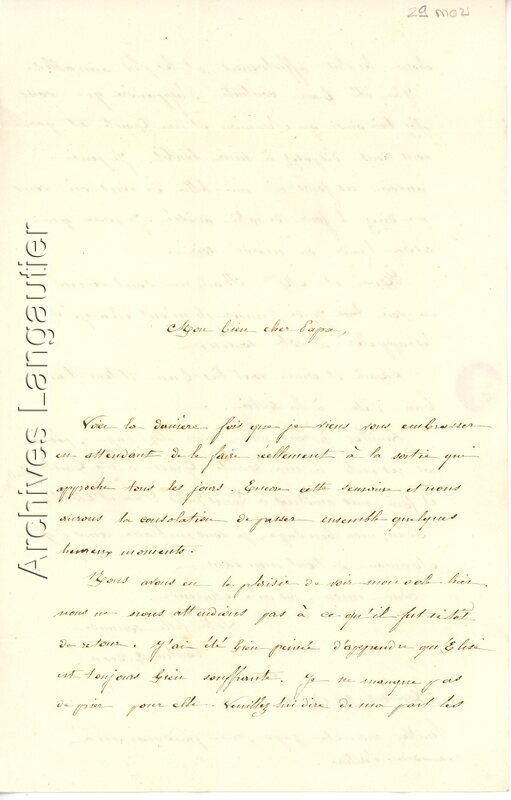 29 mov
Archives Langautier
Mon bien cher Papa,
Voici la dernière fois que je viens vous embrasser
en attendant de le faire réellement à la sortie qui
approche tous les jours. Encore cette semaine et nous
aurons la consolation de passer ensemble quelques
heureux moments.
Nous avons eu le plaisir de voir mon oncle hier
nous ne nous attendions pas à ce qu'il fut si tôt
de retour. J'ai été bien peinée d'apprendre que Elise
est toujours bien souffrante. Je ne manque pas
de prier pour elle. Veuillez lui dire de ma part les